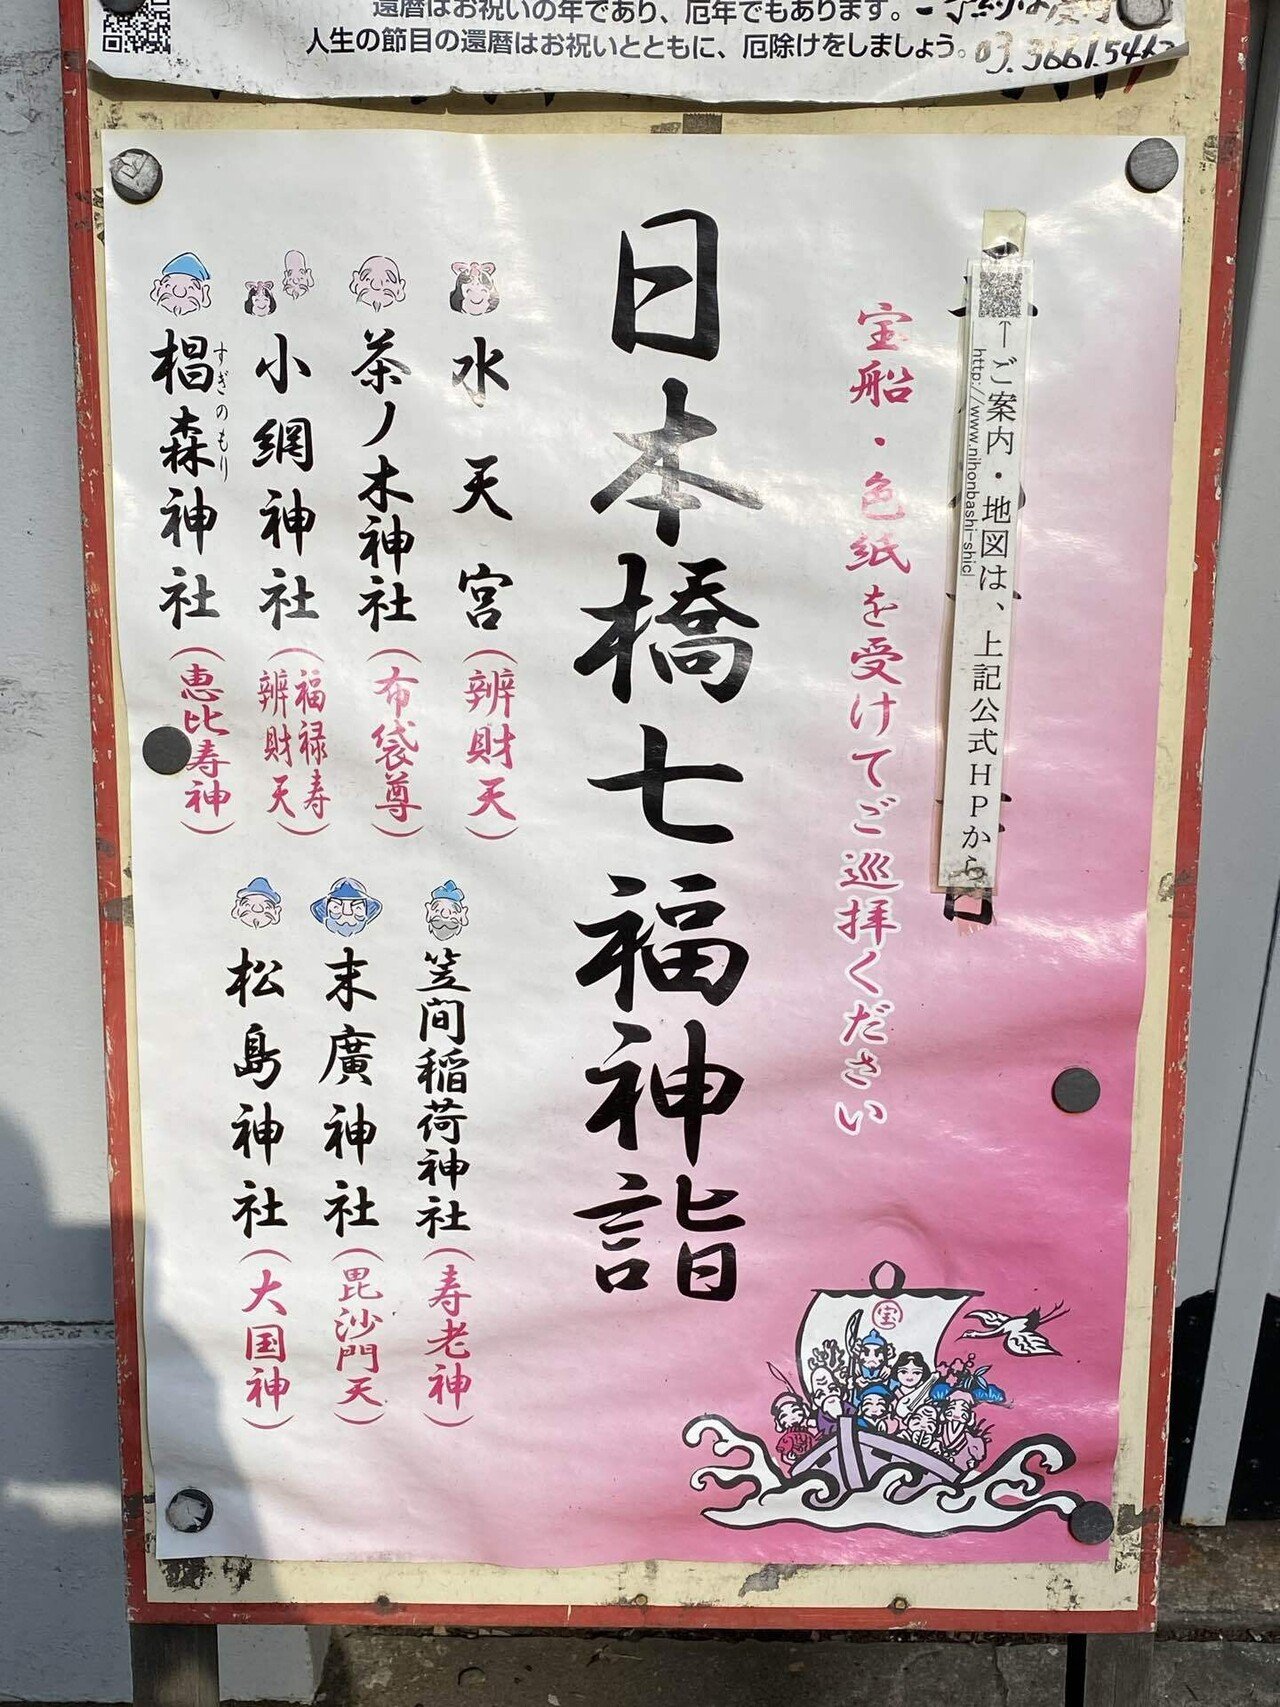 還暦はお祝いの年であり、厄年でもあります。
人生の節目の還暦はお祝いとともに、厄除けをしましょう。
03.3661.54
←ご案内・地図は、上記公式HPから
http://www.nihonbashi-shic
宝船・色紙を受けてご巡拝ください
日本橋七福神詣
水天宮(辨財天)
茶ノ木神社(布袋尊)
小網神社(福禄寿 辨財天)
椙森神社(恵比寿神)
すぎのもり
笠間稲荷神社(寿老神)
末廣神社(毘沙門天)
松島神社(大国神)
宝